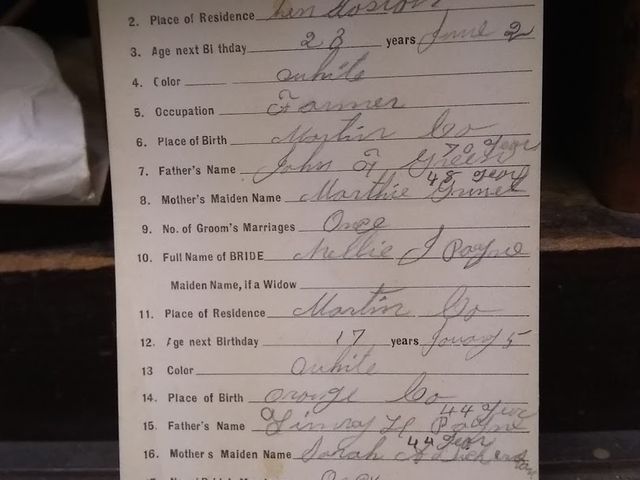 2. Place of Residence
3. Age next Bi thday 23 years June 2
4. Color white
5. Occupation Farmer
6. Place of Birth Martin Co
70 year
7. Father's Name John F
48 year
8. Mother's Maiden Name Marthie
9. No. of Groom's Marriages Once
10. Full Name of BRIDE Nellie J Payne
Maiden Name, if a Widow
11. Place of Residence Martin Co
12. Age next Birthday 17 years 5
13 Color white
14. Place of Birth Orange Co
44 year
15. Father's Name H Payne
44 year
16. Mother's Maiden Name Sarah